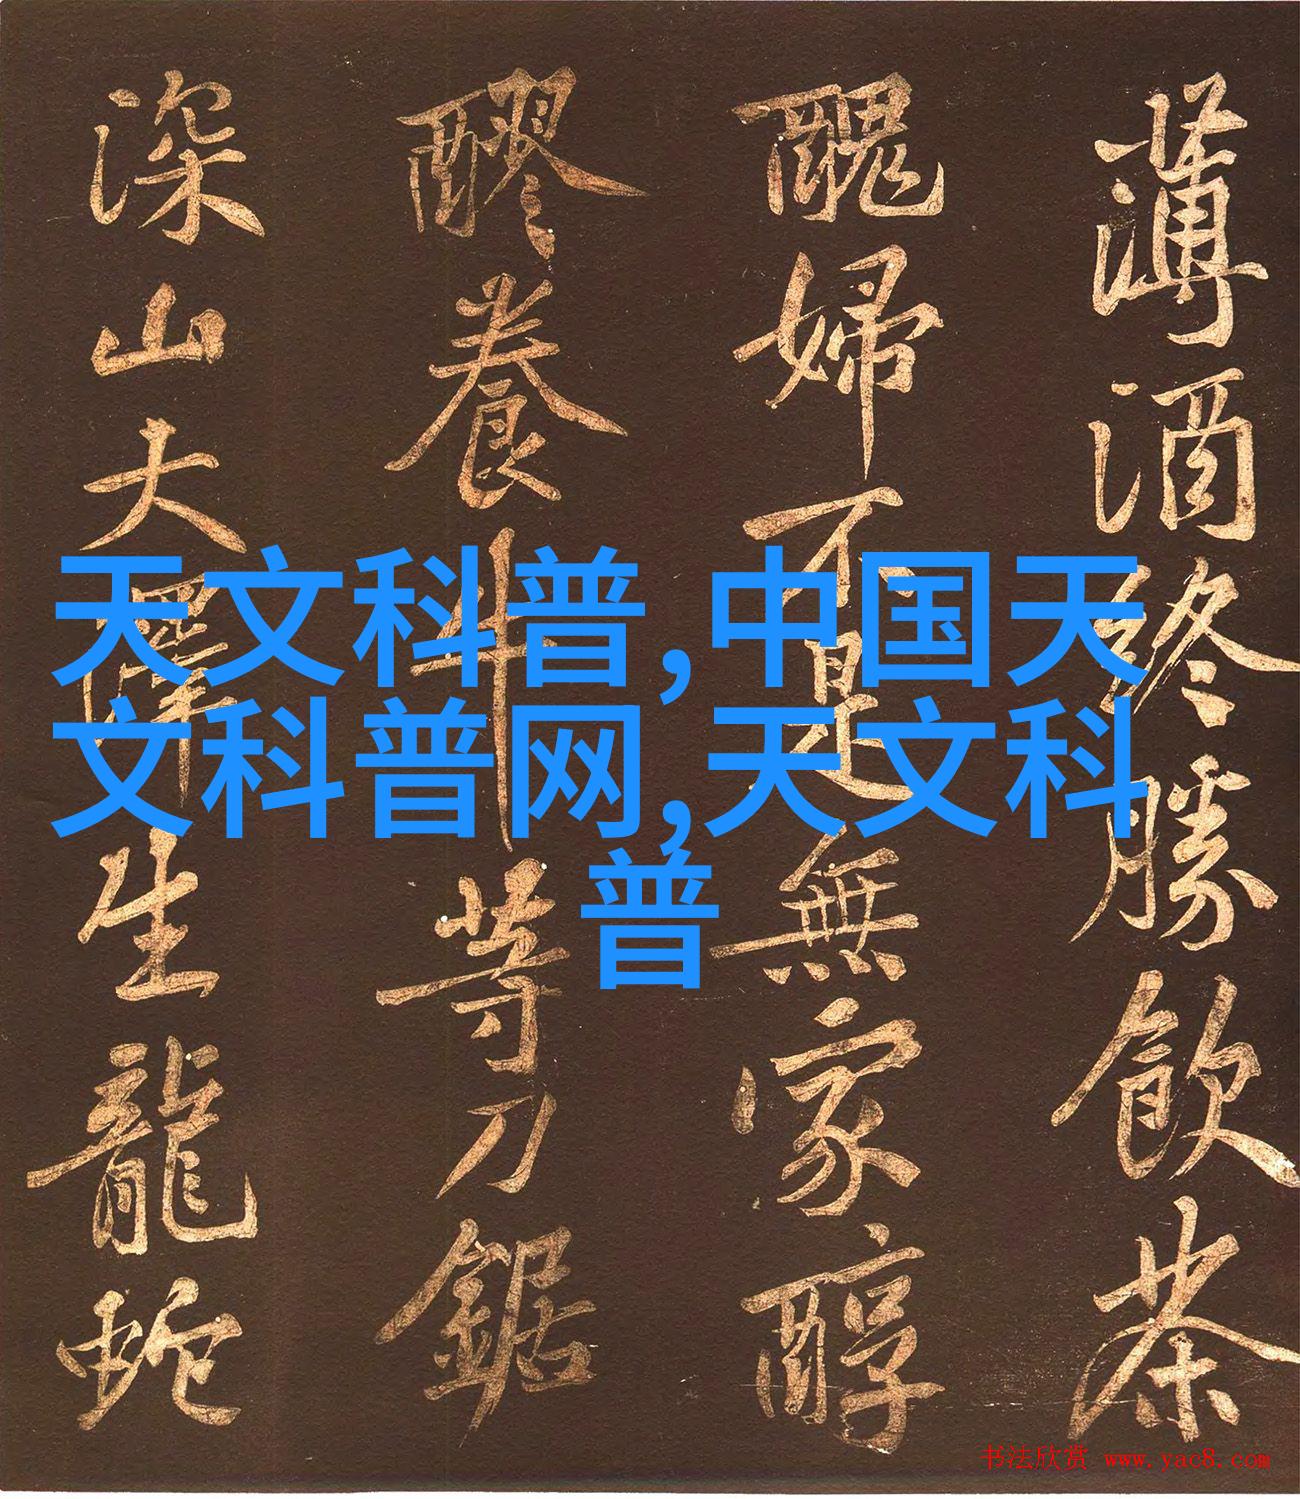 薄酒終勝飲茶
醜婦不是無家醇
醪養牛等刀鋸
深山大澤生龍蛇
天文科普,中国天
文科普网,天文科
普
书法欣赏 www.yac8.com